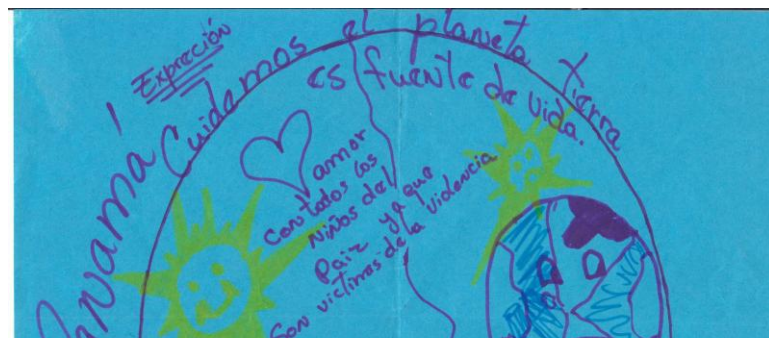 Expreción
Panamá!
Cuidemos el planeta tierra
es fuente de vida.
amor
con todos los
Niños del
Paiz ya que
Son victimas de la violencia